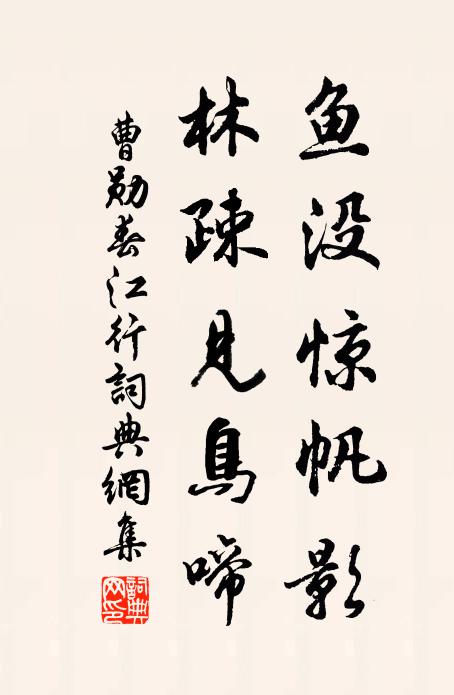 鱼没惊帆影
林疎见鳥啼
曹勛春江行詞典網集
詞典網印